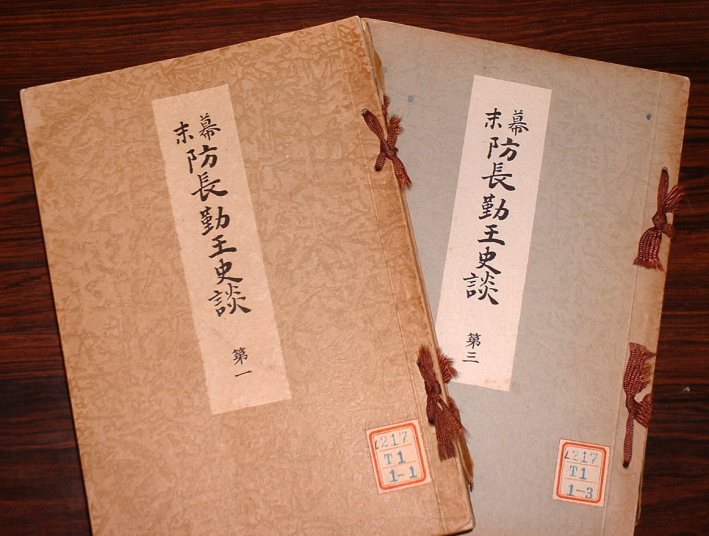 幕末防長勤王史談
第一
L217
T1
1-1
幕末防長勤王史談
第三
L217
T1
1-3